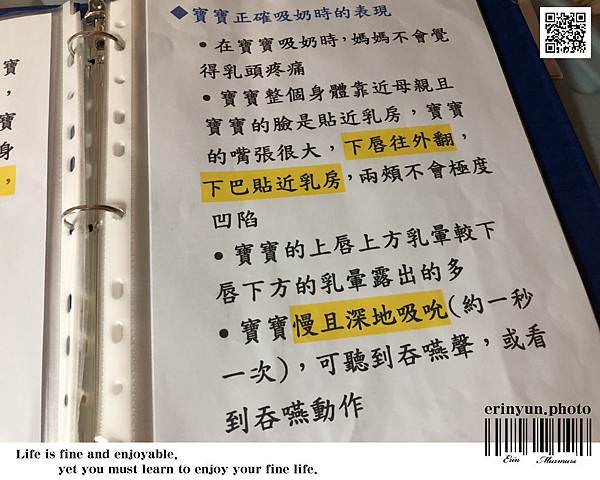 ◆寶寶正確吸奶時的表現
• 在寶寶吸奶時，媽媽不會覺
得乳頭疼痛
• 寶寶整個身體靠近母親且
寶寶的臉是貼近乳房，寶寶
的嘴張很大，下唇往外翻，
下巴貼近乳房，兩頰不會極度
凹陷
• 寶寶的上唇上方乳暈較下
唇下方的乳暈露出的多
• 寶寶慢且深地吸吮(約一秒
一次)，可聽到吞嚥聲，或看
到吞嚥動作
寶
，
寶
身
，
erinyun.photo
Erin Murmurs
Life is fine and enjoyable,
yet you must learn to enjoy your fine life.